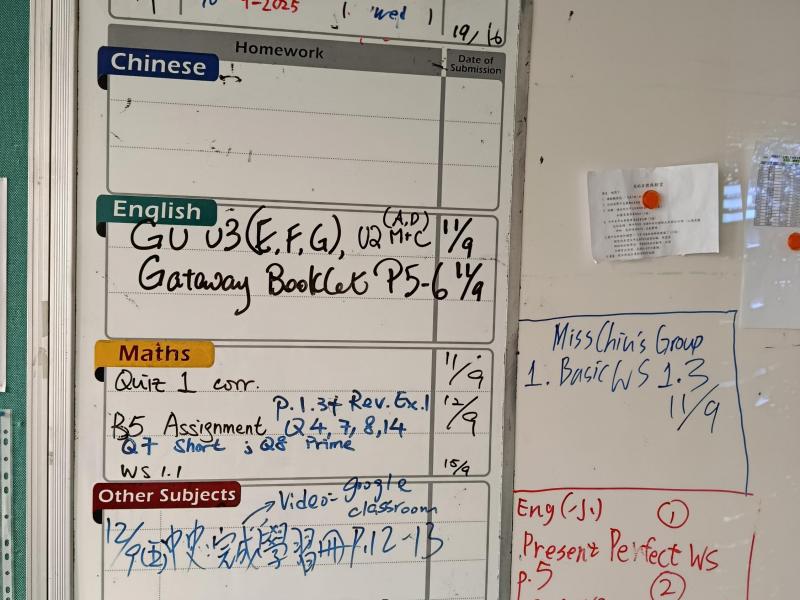 9-2025
wed
19/16
Homework
Date of Submission
Chinese
English
GU U3 (E, F, G), U2 M+C (A, D) 11/9
Gataway Booklet P5-6 11/9
Maths
Quiz 1 corr. 11/9
P.1.34 Rev. Ex.1
B5 Assignment Q4, 7, 8, 14 12/9
Q7 Short ; Q8 Prime
WS 1.1 15/9
Other Subjects
Video- google classroom
12/9(五)中史:完成學習冊P.12-13
Miss Chin's Group
1. Basic WS 1.3
11/9
Eng
①
Present Perfect WS
p.5
②